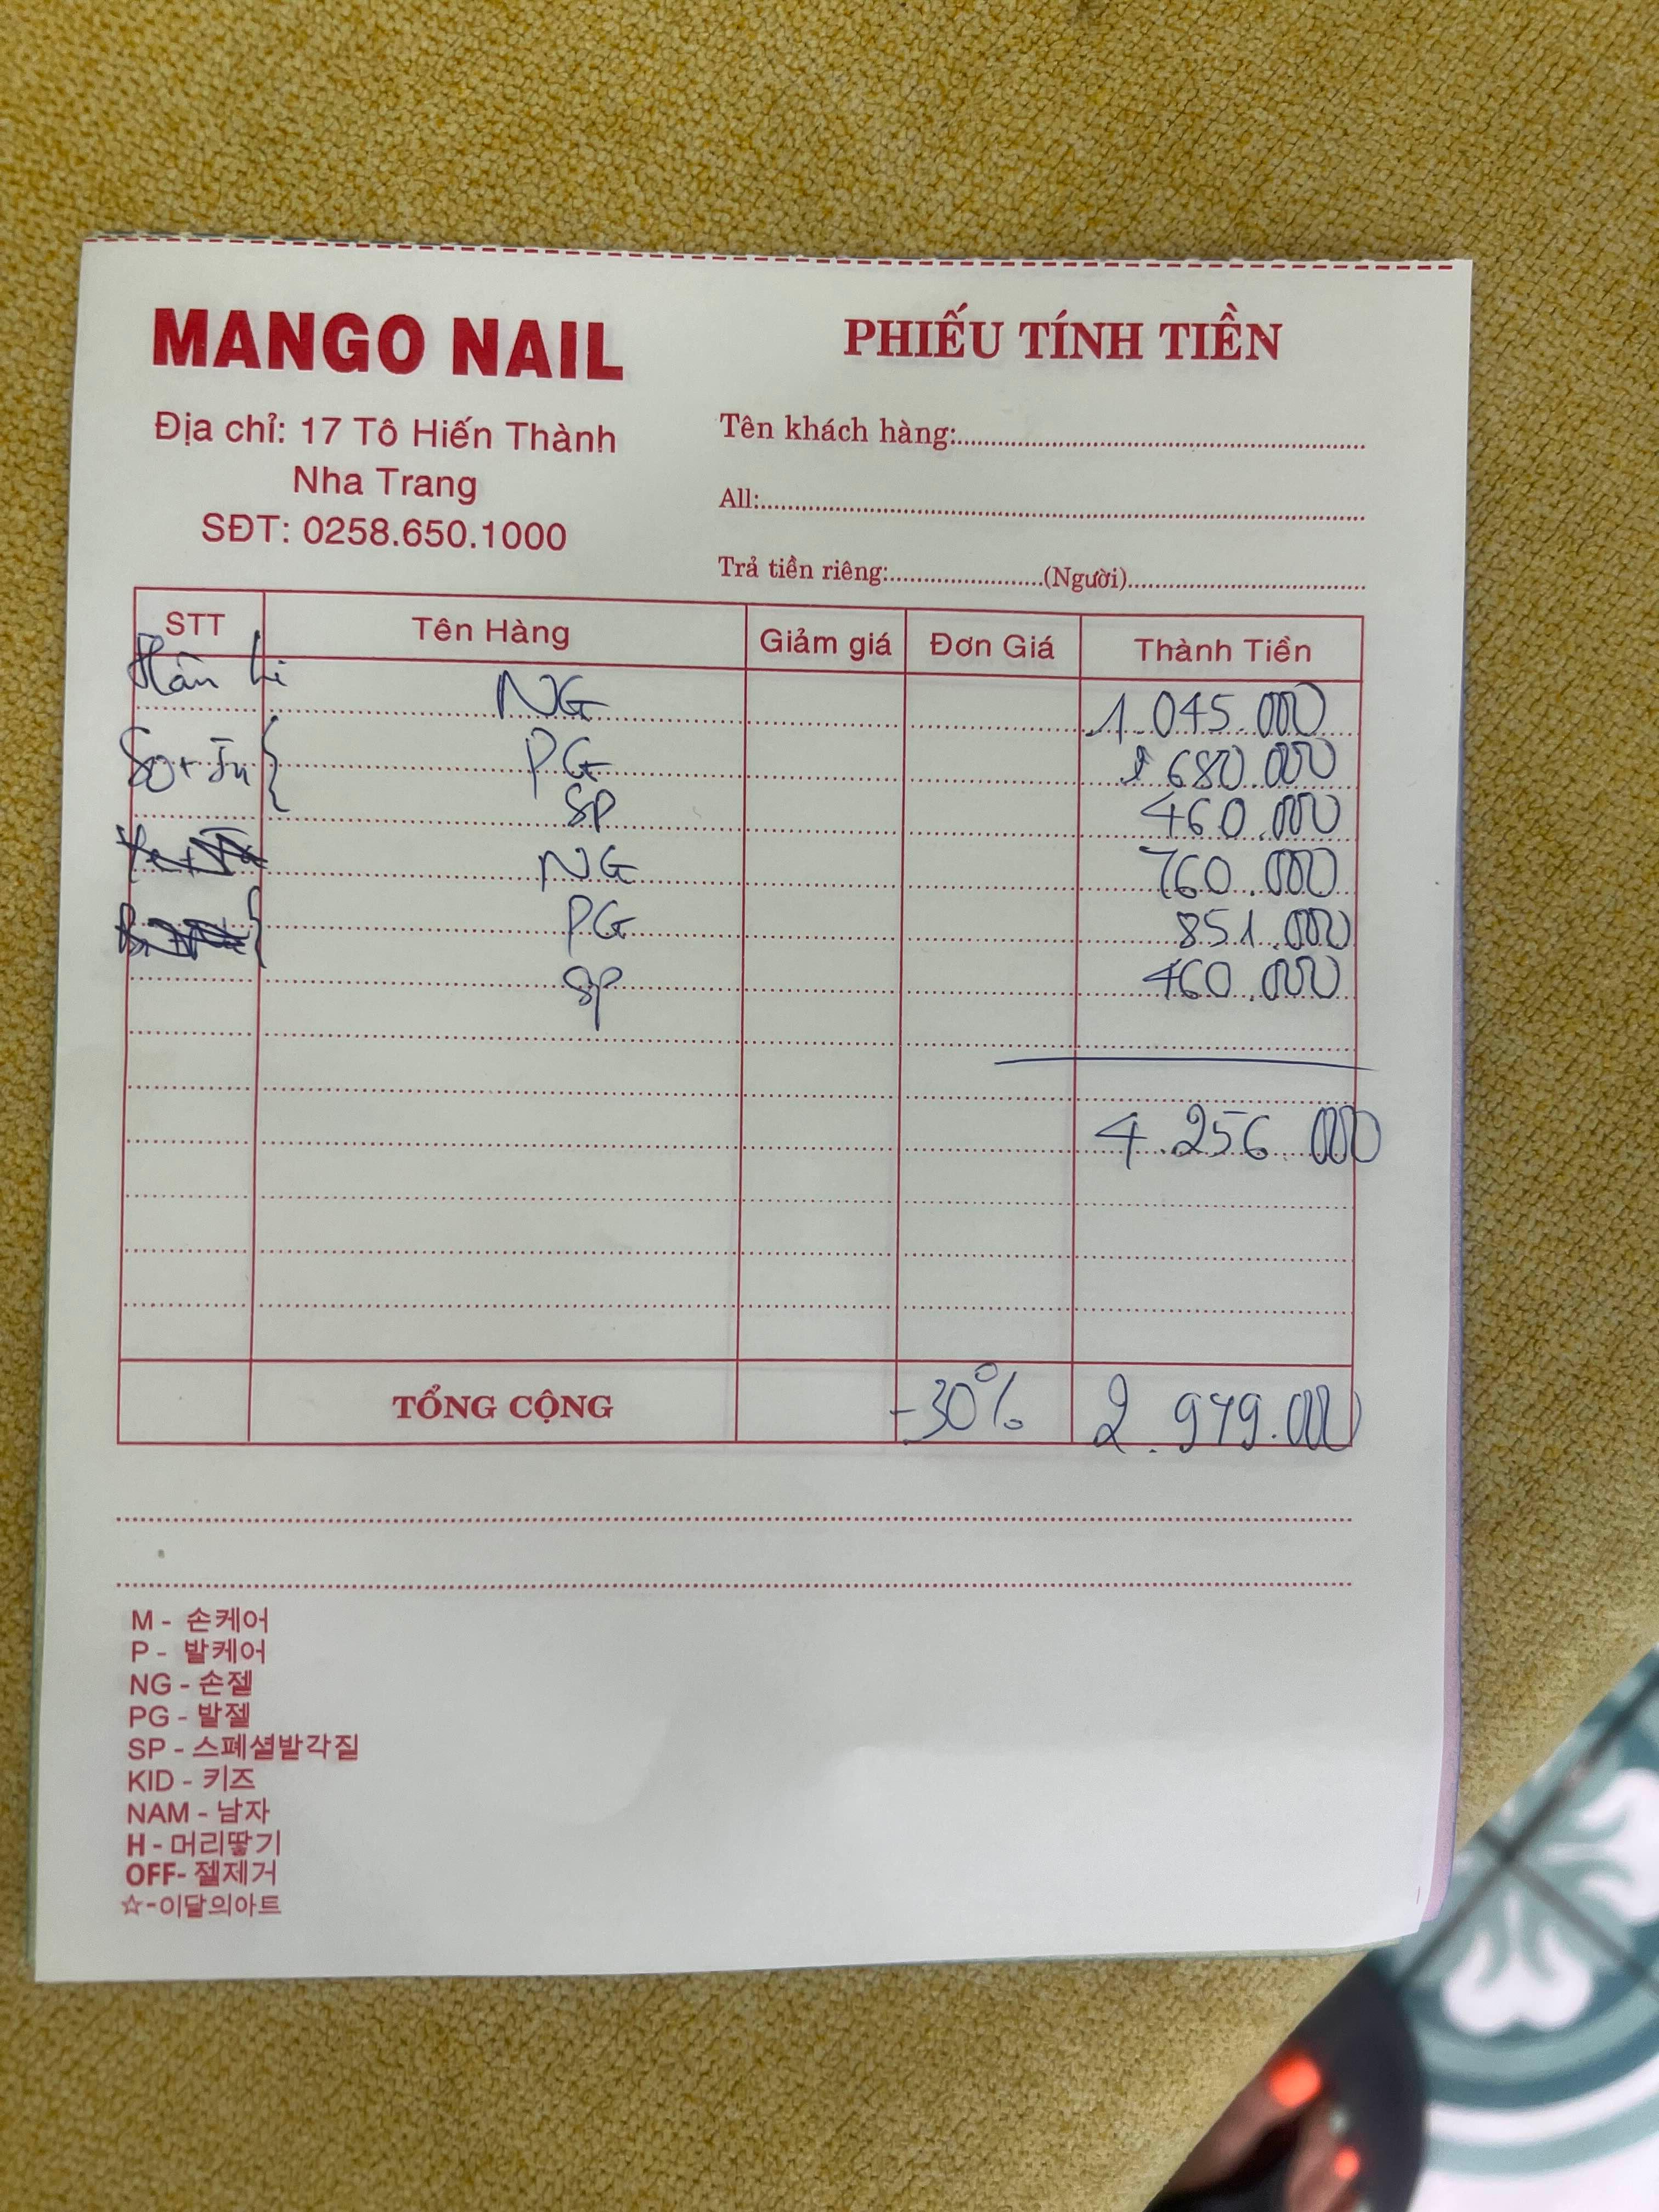 MANGO NAIL
Địa chỉ: 17 Tô Hiến Thành
Nha Trang
SĐT: 0258.650.1000
PHIẾU TÍNH TIỀN
Tên khách hàng:
All:
Trả tiền riêng: (Người)
STT Tên Hàng Giảm giá Đơn Giá Thành Tiền
NG 1.045.000
PG 680.000
SP 460.000
NG 760.000
PG 851.000
SP 460.000
4.256.000
TỔNG CỘNG -30% 2.979.000
M - 손케어
P - 발케어
NG - 손젤
PG - 발젤
SP - 스페셜발각질
KID - 키즈
NAM - 남자
H - 머리땋기
OFF- 젤제거
☆-이달의아트